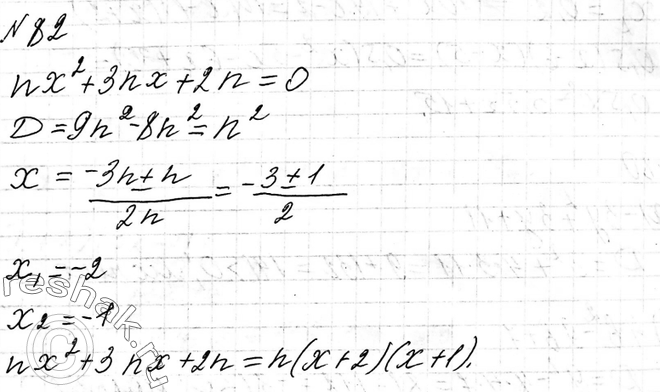 №82
nx²+3nx+2n=0
D=9n²-8n²=n²
x = (-3n±n)/(2n) = (-3±1)/2
x₁=-2
x₂=-1
nx²+3nx+2n=n(x+2)(x+1).
reshak.ru